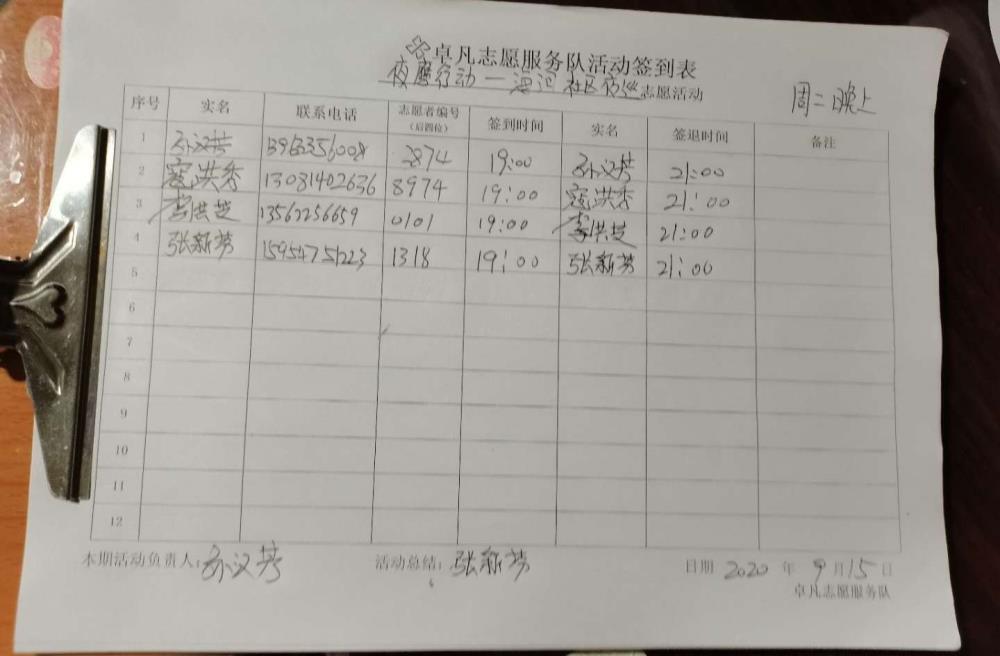 卓凡志愿服务队活动签到表
夜鹰行动一海河社区夜巡志愿活动 周二晚上
序号 实名 联系电话 志愿者编号（后四位） 签到时间 实名 签退时间 备注
1 孙汉芳 13963356008 2874 19:00 孙汉芳 21:00
2 寇洪秀 13081402636 8974 19:00 寇洪秀 21:00
3 李洪芝 13562256659 0101 19:00 李洪芝 21:00
4 张新芳 15954751223 1318 19:00 张新芳 21:00
5
6
7
8
9
10
11
12
本期活动负责人:孙汉芳 活动总结:张新芳 日期 2020 年 9 月 15 日
卓凡志愿服务队